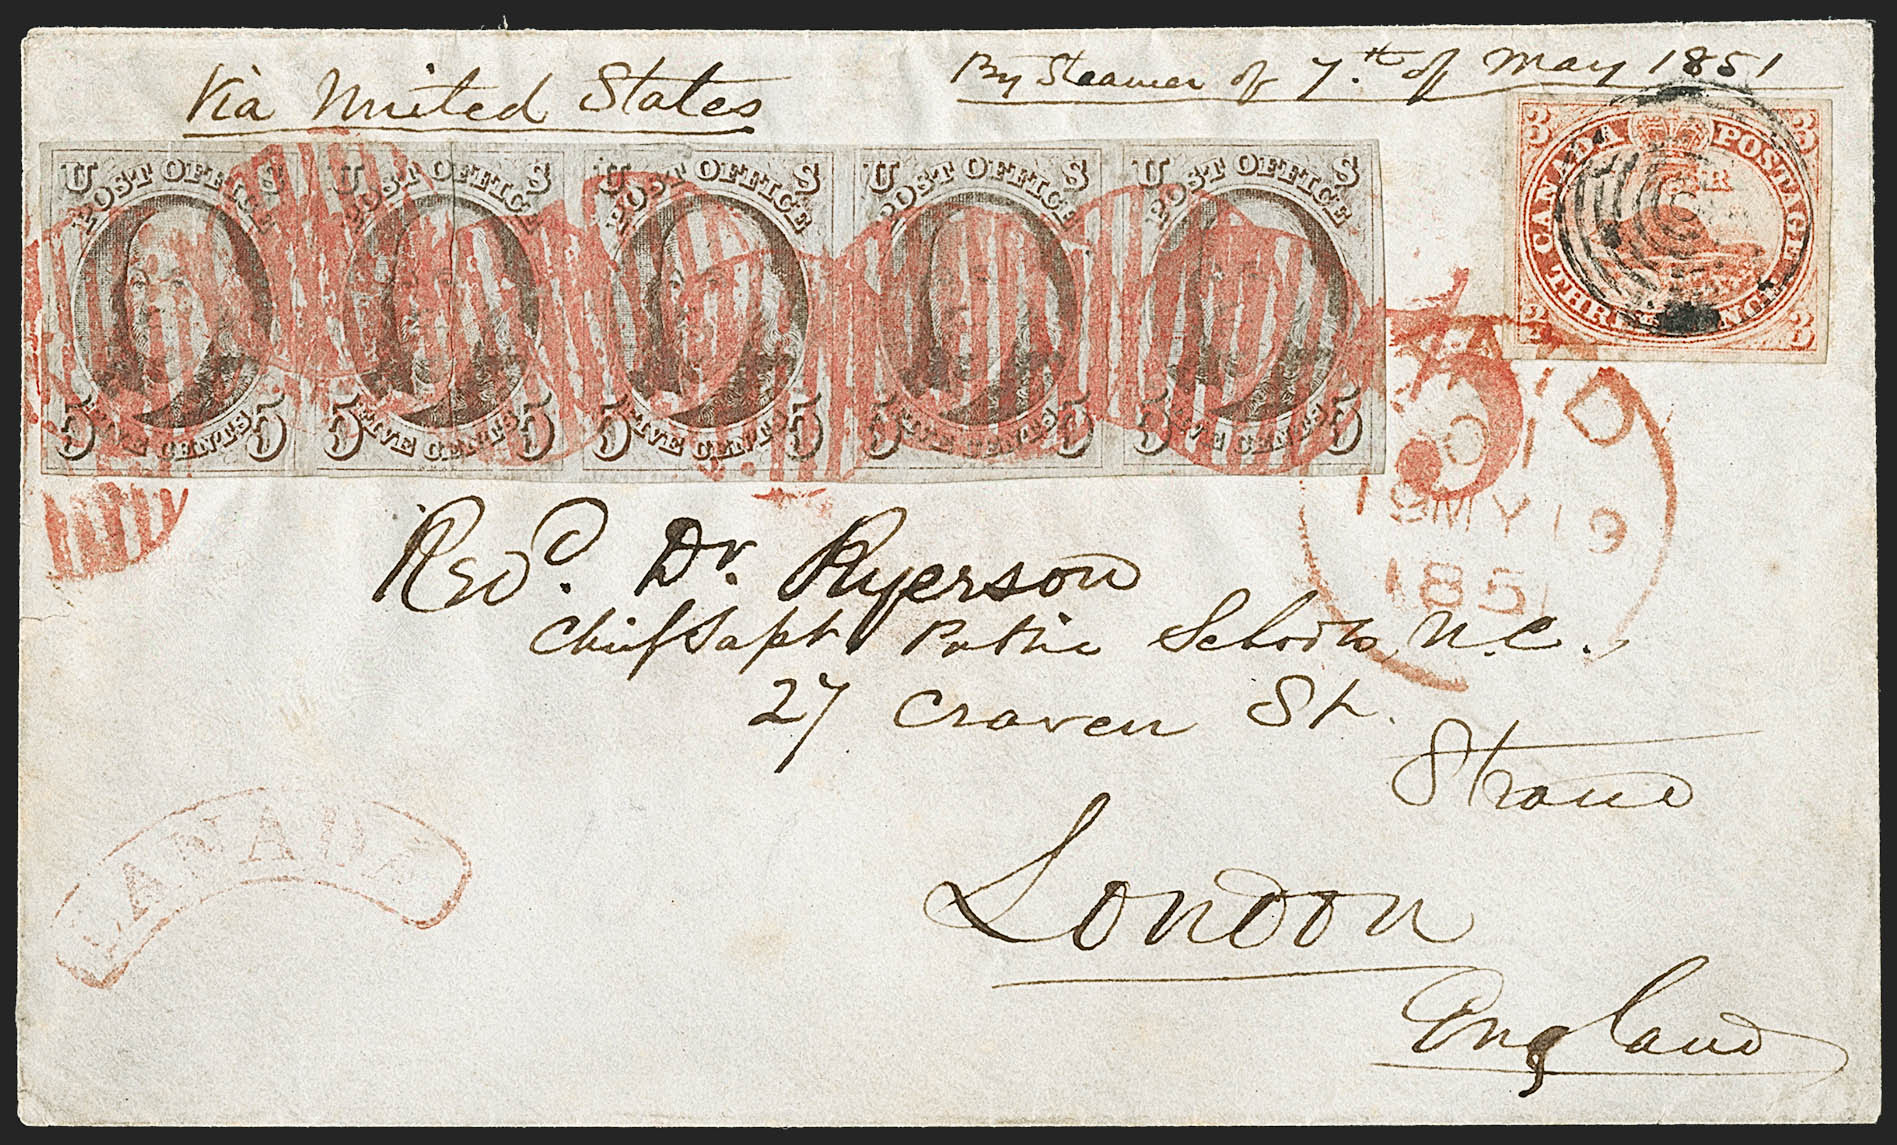 Via United States
By Steamer of 7.th of May 1851
U S
POST OFFICE
5 FIVE CENTS 5
U S
POST OFFICE
5 FIVE CENTS 5
U S
POST OFFICE
5 FIVE CENTS 5
U S
POST OFFICE
5 FIVE CENTS 5
U S
POST OFFICE
5 FIVE CENTS 5
3 3
CANADA POSTAGE
THREE PENCE
3 3
PAID
19 MY 19
1851
Revd. Dr. Ryerson
Chief Supt. Public Schools, U.C.
27 Craven St.
Strand
London
England
CANADA